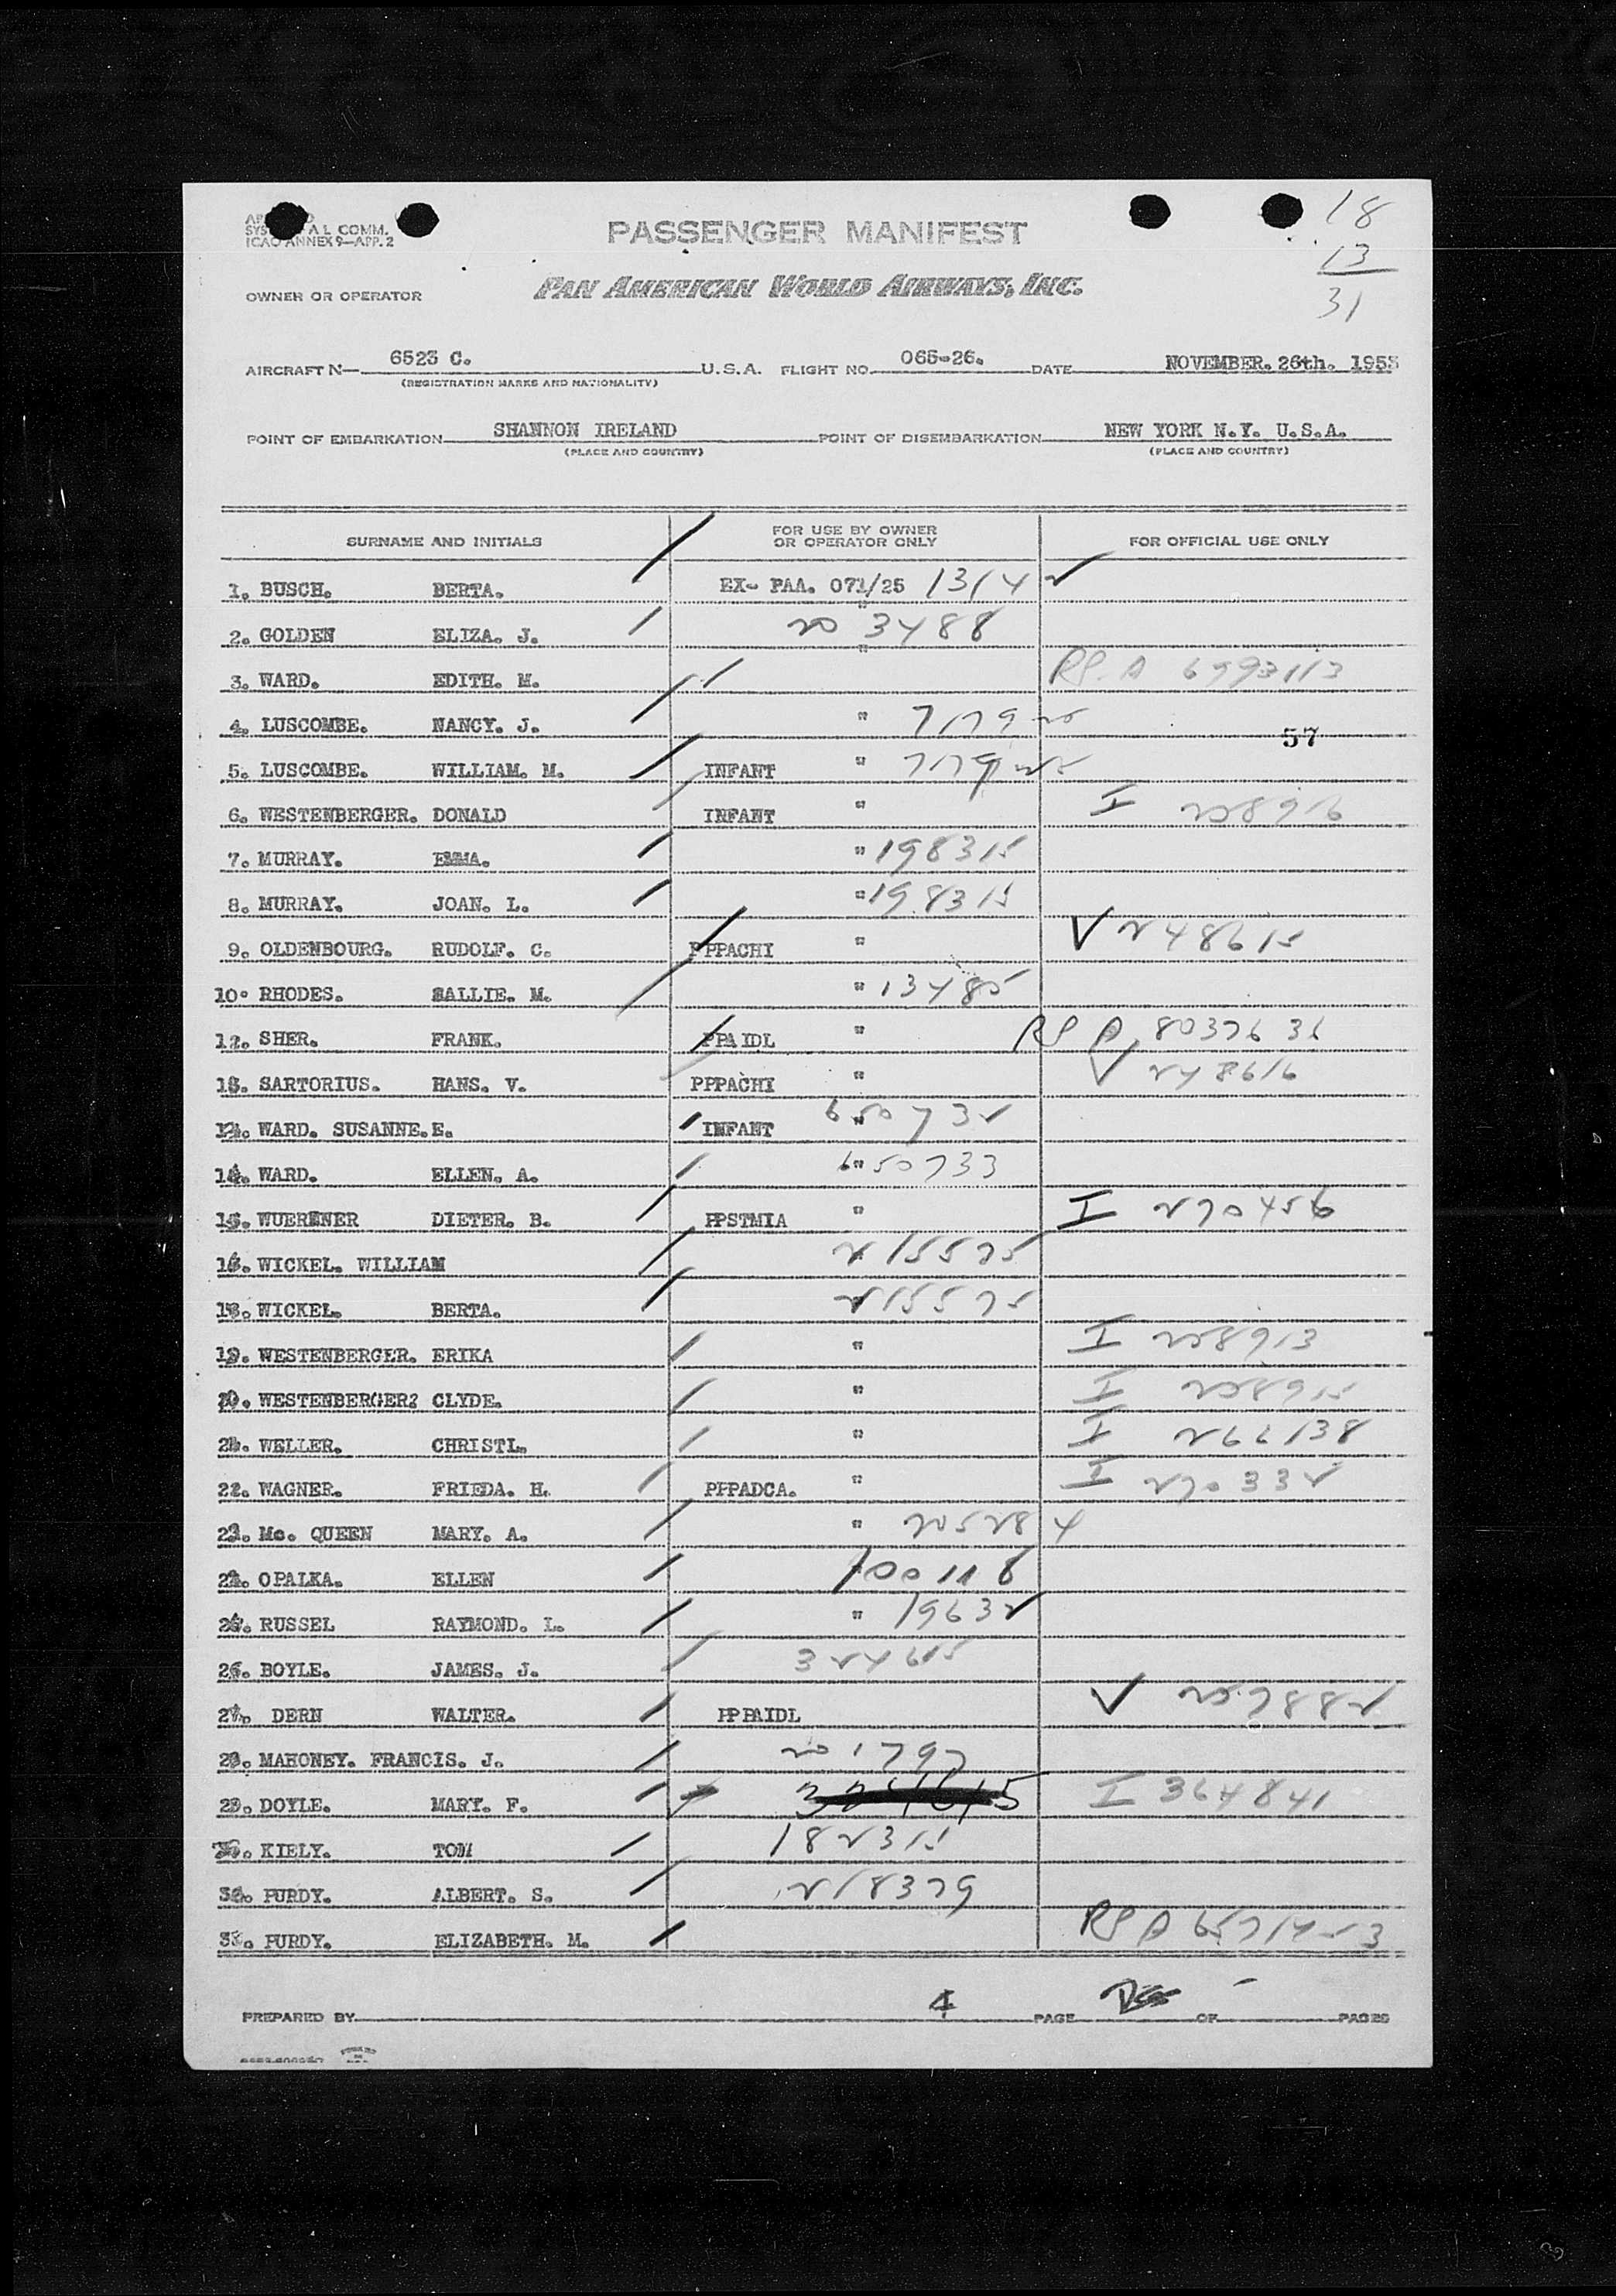 18
13
31
AL COMM.
ICAO ANNEX 9—APP. 2
PASSENGER MANIFEST
OWNER OR OPERATOR PAN AMERICAN WORLD AIRWAYS, INC.
AIRCRAFT N— 6523 C. U.S.A. FLIGHT NO. 065-26. DATE NOVEMBER. 26th. 1953
(REGISTRATION MARKS AND NATIONALITY)
POINT OF EMBARKATION SHANNON IRELAND POINT OF DISEMBARKATION NEW YORK N.Y. U.S.A.
(PLACE AND COUNTRY) (PLACE AND COUNTRY)
SURNAME AND INITIALS FOR USE BY OWNER OR OPERATOR ONLY FOR OFFICIAL USE ONLY
1. BUSCH. BERTA. EX- PAA. 071/25 1314 ✓
2. GOLDEN ELIZA. J. " 203488
3. WARD. EDITH. M. " RP. A 6993113
4. LUSCOMBE. NANCY. J. " 717925
57
5. LUSCOMBE. WILLIAM. M. INFANT " 717925
6. WESTENBERGER. DONALD INFANT " I 258916
7. MURRAY. EMMA. " 198315
8. MURRAY. JOAN. L. " 198315
9. OLDENBOURG. RUDOLF. C. PPPACHI " V 248615
10. RHODES. SALLIE. M. " 13485
12. SHER. FRANK. PPAIDL " RP A 8037636
13. SARTORIUS. HANS. V. PPPACHI " V 248616
WARD. SUSANNE. E. INFANT " 650732
14. WARD. ELLEN. A. " 650733
15. WUERKNER DIETER. B. PPSTMIA " I 270456
16. WICKEL. WILLIAM 215525
18. WICKEL. BERTA. 215575
19. WESTENBERGER. ERIKA " I 258913
20. WESTENBERGER? CLYDE. " I 258915
WELLER. CHRISTL. " I 266138
22. WAGNER. FRIEDA. H. PPPADCA. " I 270332
23. Mc. QUEEN MARY. A. " 205284
OPALKA. ELLEN 100118
RUSSEL RAYMOND. L. " 19632
26. BOYLE. JAMES. J. 324615
DERN WALTER. PPPAIDL V 257882
MAHONEY. FRANCIS. J. 201797
DOYLE. MARY. F. I 364841
KIELY. TOM 182315
PURDY. ALBERT. S. 218379
PURDY. ELIZABETH. M. RP A
PREPARED BY 4 PAGE OF PAGES